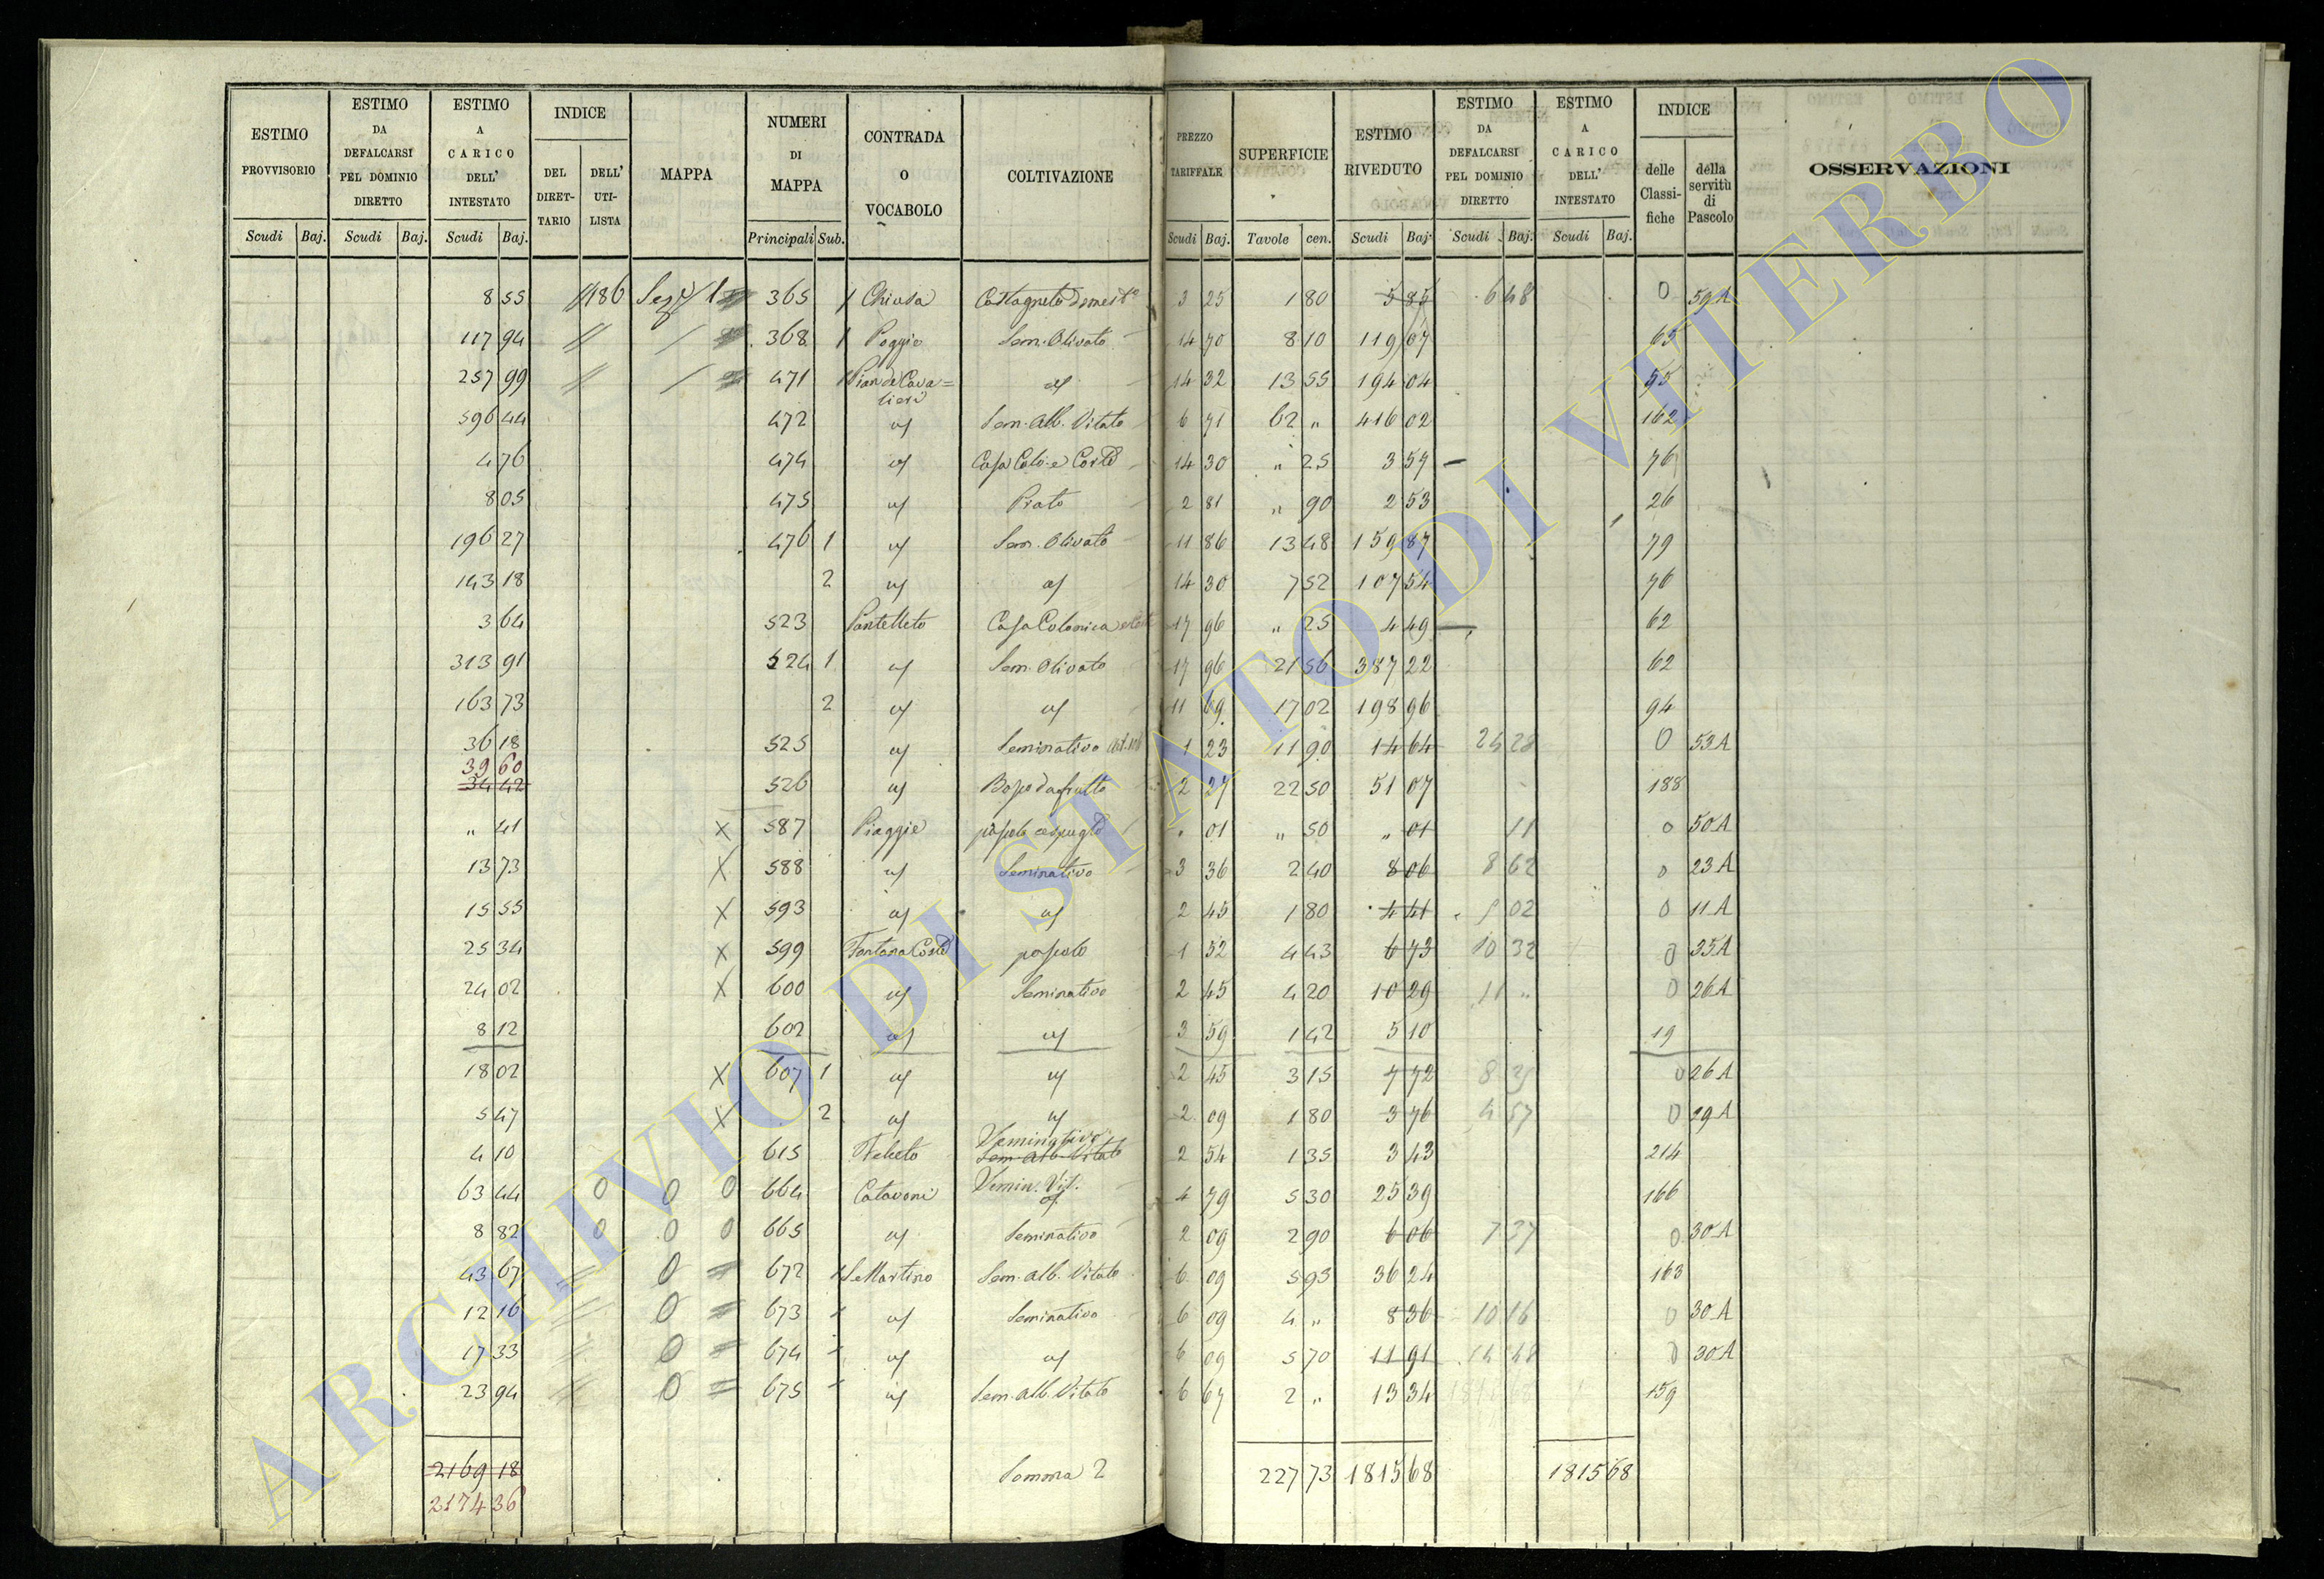 ESTIMO PROVVISORIO | ESTIMO DA DEFALCARSI PEL DOMINIO DIRETTO | ESTIMO A CARICO DELL' INTESTATO | INDICE | MAPPA | NUMERI DI MAPPA | CONTRADA O VOCABOLO | COLTIVAZIONE | PREZZO TARIFFALE | SUPERFICIE | ESTIMO RIVEDUTO | ESTIMO DA DEFALCARSI PEL DOMINIO DIRETTO | ESTIMO A CARICO DELL' INTESTATO | INDICE | OSSERVAZIONI
DEL DIRETTARIO | DELL' UTILISTA | delle Classifiche | della servitù di Pascolo
Scudi | Baj. | Scudi | Baj. | Scudi | Baj. | Principali | Sub. | Scudi | Baj. | Tavole | cen. | Scudi | Baj. | Scudi | Baj. | Scudi | Baj.
8 55 | 365 | 1 | Chiusa | Castagneto domest° | 3 25 | 1 80 | 5 85 | 6 48 | 0 | 59 A
117 94 | 368 | 1 | Poggio | Sem. Olivato | 14 70 | 8 10 | 119 07 | 65
257 99 | 471 | 1 | Pian de Cavalieri | " | 14 32 | 13 55 | 194 04 | 55
596 44 | 472 | Sem. Alb. Vitato | 6 71 | 62 " | 416 02 | 162
4 76 | 474 | Casa Colo. e Corte | 14 30 | " 25 | 3 57 | 76
8 05 | 475 | Prato | 2 81 | " 90 | 2 53 | 26
196 27 | 476 | 1 | Sem. Olivato | 11 86 | 13 48 | 159 87 | 79
143 18 | 2 | 14 30 | 7 52 | 107 54 | 76
3 64 | 523 | Pantelleto | Casa Colonica | 17 96 | " 25 | 4 49 | 62
313 91 | 524 | 1 | Sem. Olivato | 17 96 | 21 56 | 387 22 | 62
163 73 | 2 | 11 69 | 17 02 | 198 96 | 94
36 18 | 525 | Seminativo | 1 23 | 11 90 | 14 64 | 0 | 53 A
39 60
34 42 | 526 | Bosco da frutto | 2 27 | 22 50 | 51 07 | 188
" 41 | X | 587 | Piaggie | pascolo cespuglto | " 01 | " 50 | " 01 | 11 | 0 | 50 A
13 73 | X | 588 | Seminativo | 3 36 | 2 40 | 8 06 | 8 62 | 0 | 23 A
15 55 | X | 593 | 2 45 | 1 80 | 4 41 | 0 | 11 A
25 34 | X | 599 | Fontana Coste | pascolo | 1 52 | 4 43 | 6 73 | 10 32 | 0 | 35 A
24 02 | X | 600 | Seminativo | 2 45 | 4 20 | 10 29 | 11 " | 0 | 26 A
8 12 | 602 | 3 59 | 1 42 | 5 10 | 19
18 02 | X | 607 | 1 | 2 45 | 3 15 | 7 72 | 0 | 26 A
5 47 | X | 2 | 2 09 | 1 80 | 3 76 | 4 57 | 0 | 29 A
Seminativo
4 10 | 615 | Felceto | Sem. Alb. Vitato | 2 54 | 1 35 | 3 43 | 214
63 44 | 0 | 0 | 0 | 664 | Catavoni | Semin. Vit. | 4 79 | 5 30 | 25 39 | 166
8 82 | 0 | 0 | 0 | 665 | Seminativo | 2 09 | 2 90 | 6 06 | 7 37 | 0 | 30 A
43 67 | 0 | 672 | S. Martino | Sem. Alb. Vitato | 6 09 | 5 95 | 36 24 | 163
12 16 | 0 | 673 | Seminativo | 6 09 | 4 " | 8 36 | 10 16 | 0 | 30 A
17 33 | 0 | 674 | 6 09 | 5 70 | 11 91 | 14 48 | 0 | 30 A
23 94 | 0 | 675 | Sem. Alb. Vitato | 6 67 | 2 " | 13 34 | 159
2169 18 | Somma 2 | 227 73 | 1815 68 | 1815 68
2174 36
ARCHIVIO DI STATO DI VITERBO